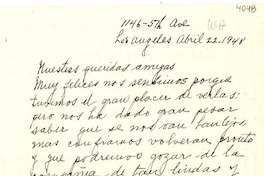 4048
1146-5th Ave
USA
Los Angeles Abril 22-1948
Nuestras queridas amigas
Muy felices nos sentimos porque
tuvimos el gran placer de verlas;
pero nos ha dado gran pesar
saber que se nos van tan lejos,
mas confiamos volveran pronto
y que podremos gozar de la
compania de tan lindas y